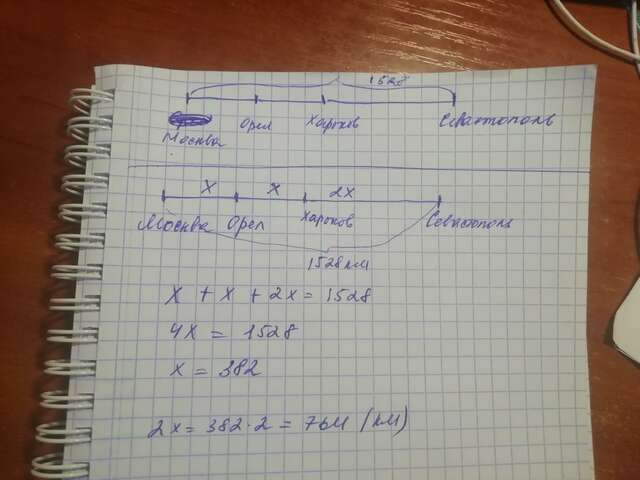 1528
Москва Орел Харьков Севастополь
x x 2x
Москва Орел Харьков Севастополь
1528 км
x + x + 2x = 1528
4x = 1528
x = 382
2x = 382·2 = 764 (км)